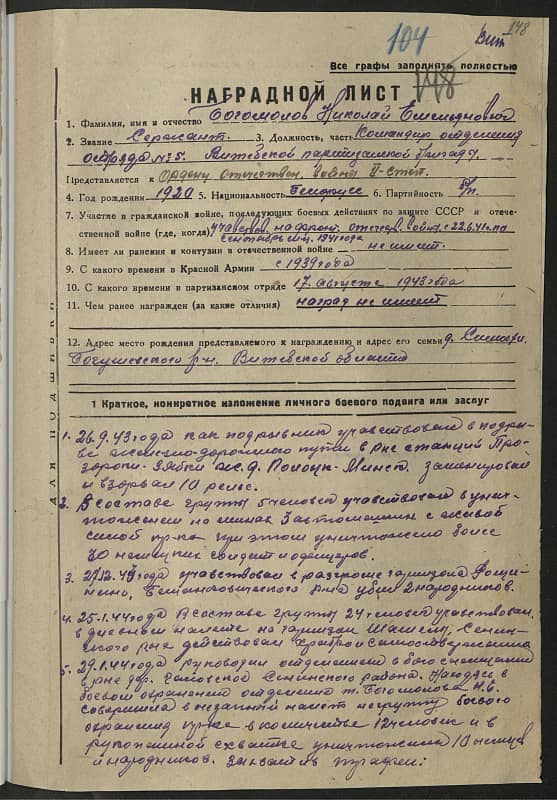 104
148
Вит
Все графы заполнять полностью
НАГРАДНОЙ ЛИСТ 148
1. Фамилия, имя и отчество Богомолов Николай Емельянович
2. Звание Сержант. 3. Должность, часть Командир отделения
отряда №5. Витебской партизанской бригады,
Представляется к Ордену Отечествен. войны II-степ.
4. Год рождения 1920 5. Национальность Белорусс 6. Партийность б/п.
7. Участие в гражданской войне, последующих боевых действиях по защите СССР и отече-
ственной войне (где, когда) участвов. на фронт. отечеств. войны с 22.6.41 по
сентябрь м-ц 1941 года
8. Имеет ли ранения и контузии в отечественной войне не имеет.
9. С какого времени в Красной Армии с 1939 года
10. С какого времени в партизанском отряде 17 августа 1943 года
11. Чем ранее награжден (за какие отличия) наград не имеет
12. Адрес место рождения представляемого к награждению и адрес его семьи д.
Богушевского р-н. Витебской области
ДЛЯ ПОДШИВКИ
1 Краткое, конкретное изложение личного боевого подвига или заслуг
1. 26.9.43 года как подрывник участвовал в подры-
ве железно-дорожного пути в р-не станций Про-
зороки - Зябки ж.д. Полоцк-Минск заминировал
и взорвал 10 рельс.
2. В составе группы 5 человек участвовал в унич-
тожении на минах 3 автомашин с живой
силой пр-ка при этом уничтожено более
30 немецких солдат и офицеров.
3. 27.12.43 года участвовал в разгроме гарнизона
р-на убил 2 народников.
4. 25.1.44 года В составе группы 24 человек участвовал
в дневном налете на гарнизон Сенин-
ского р-на действовал храбро и самоотверженно
5. 29.1.44 года руководил отделением в бою с немцами
в р-не дер. Сенинского района. Находясь в
боевом охранении отделение т. Богомолова Н.Е.
совершило внезапный налет на группу боевого
охранения пр-ка в количестве 12 человек и в
рукопашной схватке уничтожили 10 немцев
и народников. Захватив трофеи: